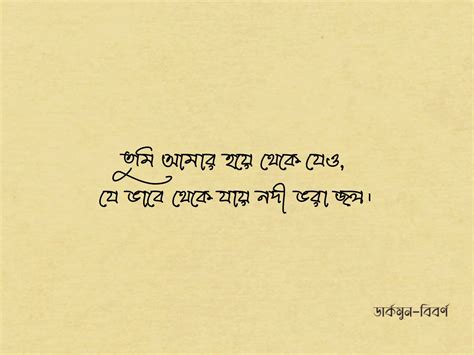 তুমি আমার হয়ে থেকে যেও,
যে ভাবে থেকে যায় নদী ভরা জল।
ডার্কমুন-বিবর্ণ